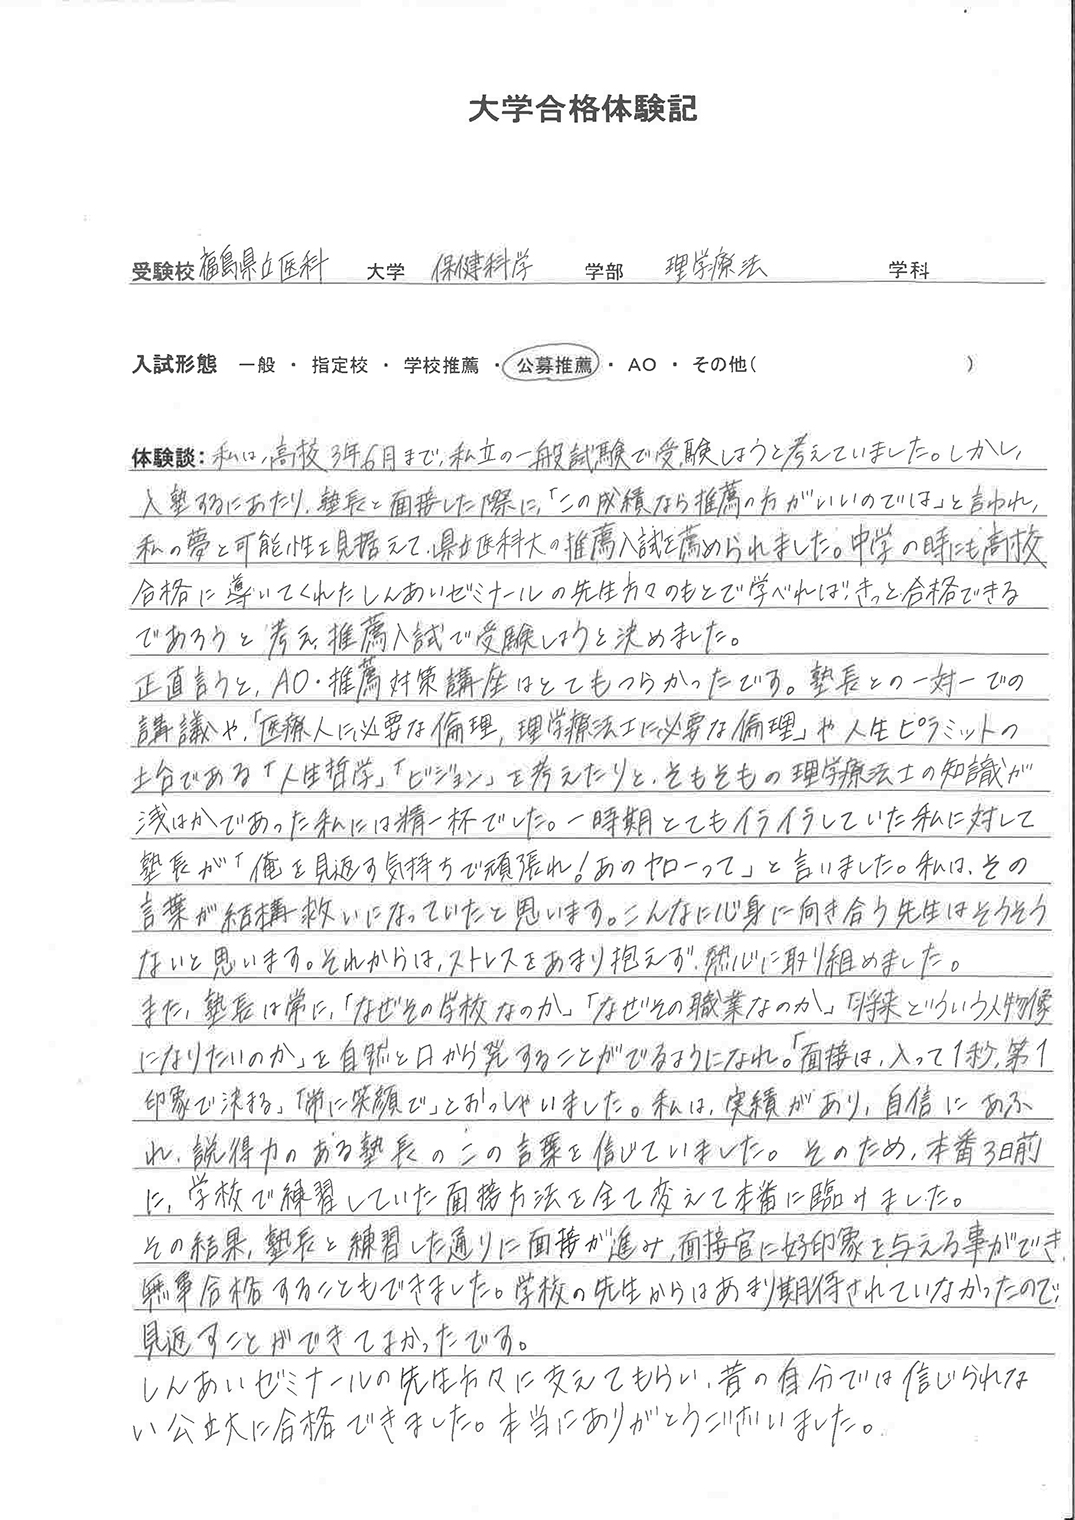 大学合格体験記
受験校 福島県立医科 大学 保健科学 学部 理学療法 学科
入試形態 一般 ・ 指定校 ・ 学校推薦 ・ 公募推薦 ・ AO ・ その他( )
体験談: 私は、高校3年6月まで、私立の一般試験で受験しようと考えていました。しかし、
入塾するにあたり、塾長と面接した際に、「この成績なら推薦の方がいいのでは」と言われ、
私の夢と可能性を見据えて、県立医科大の推薦入試を薦められました。中学の時にも高校
合格に導いてくれたしんあいゼミナールの先生方々のもとで学べれば、きっと合格できる
であろうと考え、推薦入試で受験しようと決めました。
正直言うと、AO・推薦対策講座はとてもつらかったです。塾長との一対一での
講議や、「医療人に必要な倫理,理学療法士に必要な倫理」や人生ピラミットの
土台である「人生哲学」「ビジョン」を考えたりと、そもそもの理学療法士の知識が
浅はかであった私には精一杯でした。一時期とてもイライラしていた私に対して
塾長が「俺を見返す気持ちで頑張れ!あのヤローって」と言いました。私は、その
言葉が結構救いになっていたと思います。こんなに心身に向き合う先生はそうそう
ないと思います。それからは、ストレスをあまり抱えず、熱心に取り組めました。
また、塾長は常に、「なぜその学校なのか」「なぜその職業なのか」「将来どういう人物像
になりたいのか」を自然と口から発することができるようになれ。「面接は、入って1秒、第1
印象で決まる」「常に笑顔で」とおっしゃいました。私は、実績があり、自信にあふ
れ、説得力のある塾長のこの言葉を信じていました。そのため、本番3日前
に、学校で練習していた面接方法を全て変えて本番に臨みました。
その結果、塾長と練習した通りに面接が進み、面接官に好印象を与える事ができ、
無事合格することもできました。学校の先生からはあまり期待されていなかったので、
見返すことができてよかったです。
しんあいゼミナールの先生方々に支えてもらい、昔の自分では信じられな
い公立大に合格できました。本当にありがとうございました。